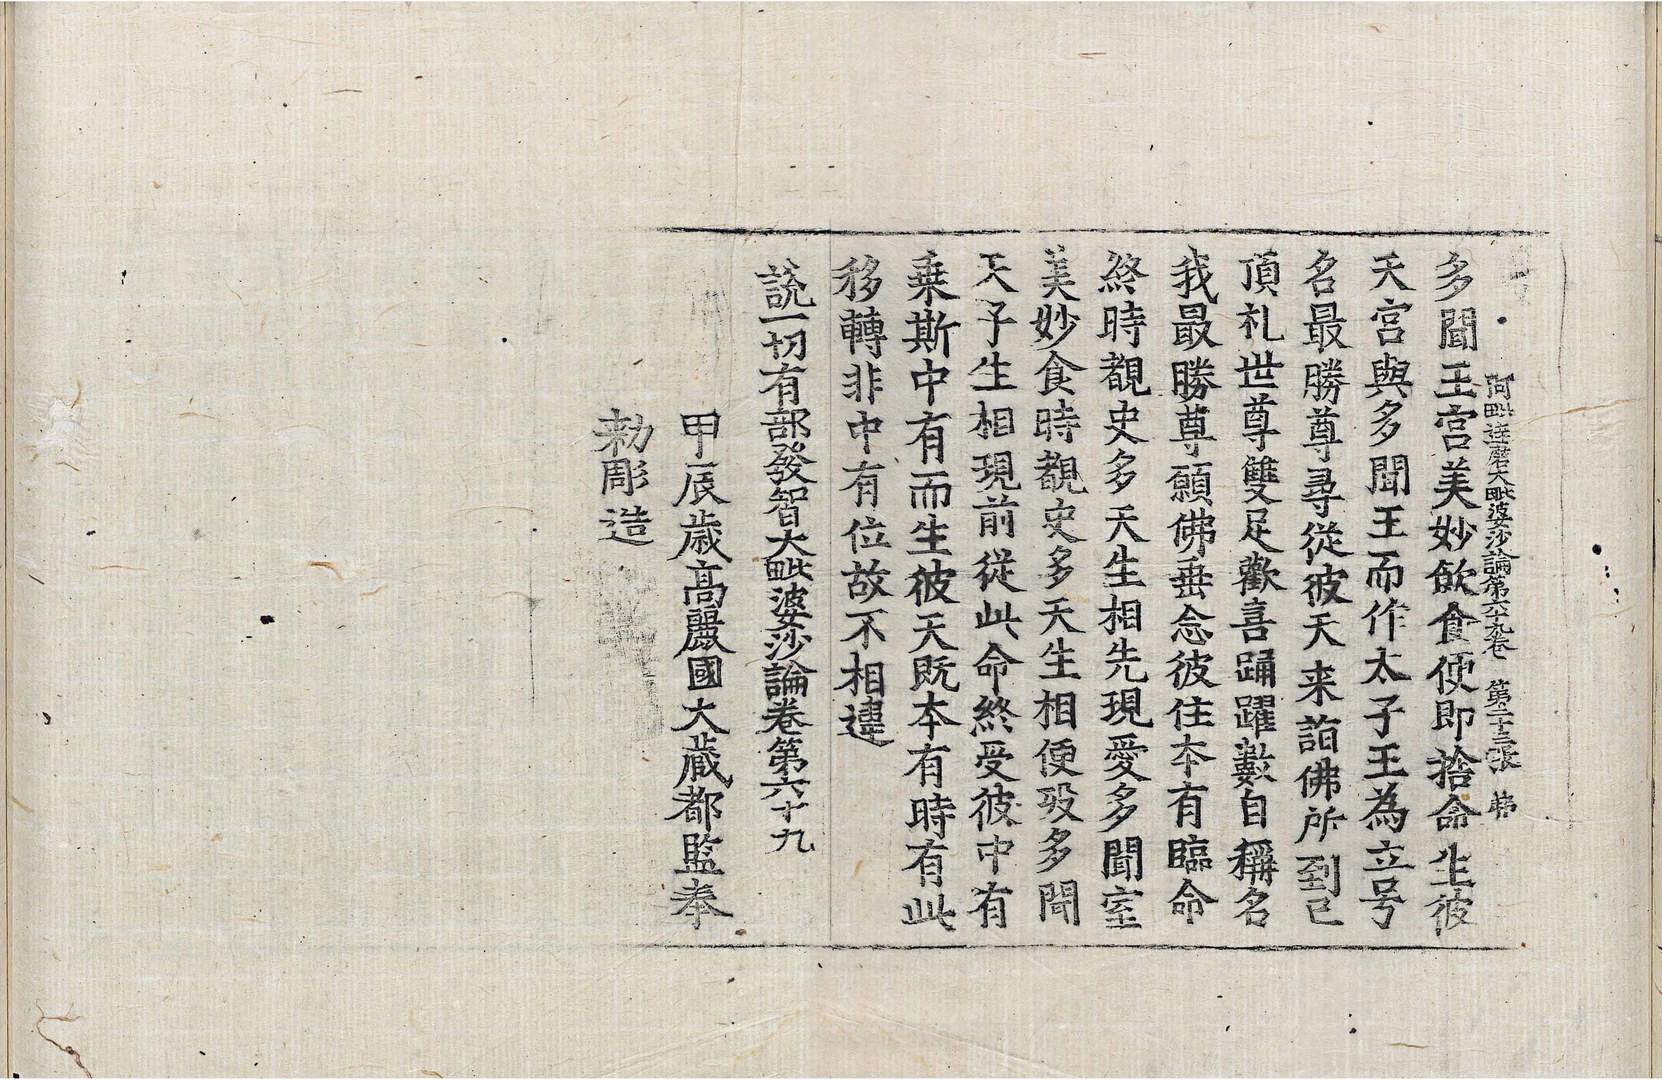 阿毗達磨大毗婆沙論第六十九卷 第二十三張 弗
多聞王宮美妙飮食便即捨命生彼
天宮與多聞王而作太子王為立号
名最勝尊尋從彼天来詣佛所到已
頂礼世尊雙足歡喜踊躍數自稱名
我最勝尊願佛垂念彼住本有臨命
終時覩史多天生相先現愛多聞室
美妙食時覩史多天生相便歿多聞
天子生相現前從此命終受彼中有
乗斯中有而生彼天旣本有時有此
移轉非中有位故不相違
說一切有部發智大毗婆沙論卷第六十九
甲辰歳高麗國大藏都監奉
勑彫造